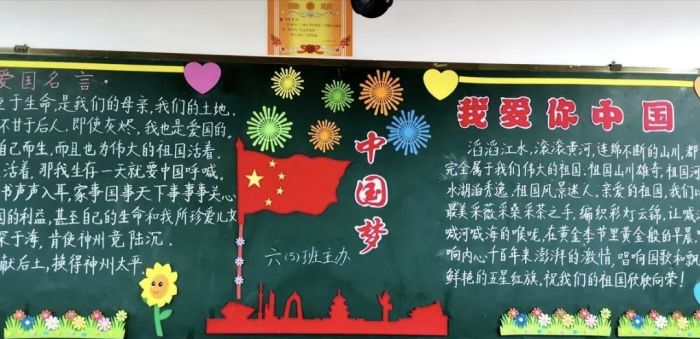 爱国名言·
于生命,是我们的母亲,我们的土地.
不甘于后人,即使灰烬,我也是爱国的.
自己而生,而且也为伟大的祖国活着.
活着,那我生存一天就要中国呼喊.
书声声入耳,家事国事天下事事事关心
国的利益,甚至自己的生命和我所珍爱儿女
深于海,肯使神州竟陆沉.
献后土,换得神州太平.
中国梦
六(5)班主办
我爱你中国
滔滔江水,滚滚黄河,连绵不断的山川,都
完全属于我们伟大的祖国.祖国山川雄奇,祖国河
水湖滔秀逸,祖国风景迷人,亲爱的祖国,我们
最美采薇采桑采茶之手,编织彩灯云锦,让喊
喊河喊海的喉咙,在黄金季节里黄金般的早晨
响内心十百年来澎湃的激情,唱响国歌和飘
鲜艳的五星红旗,祝我们的祖国欣欣向荣!